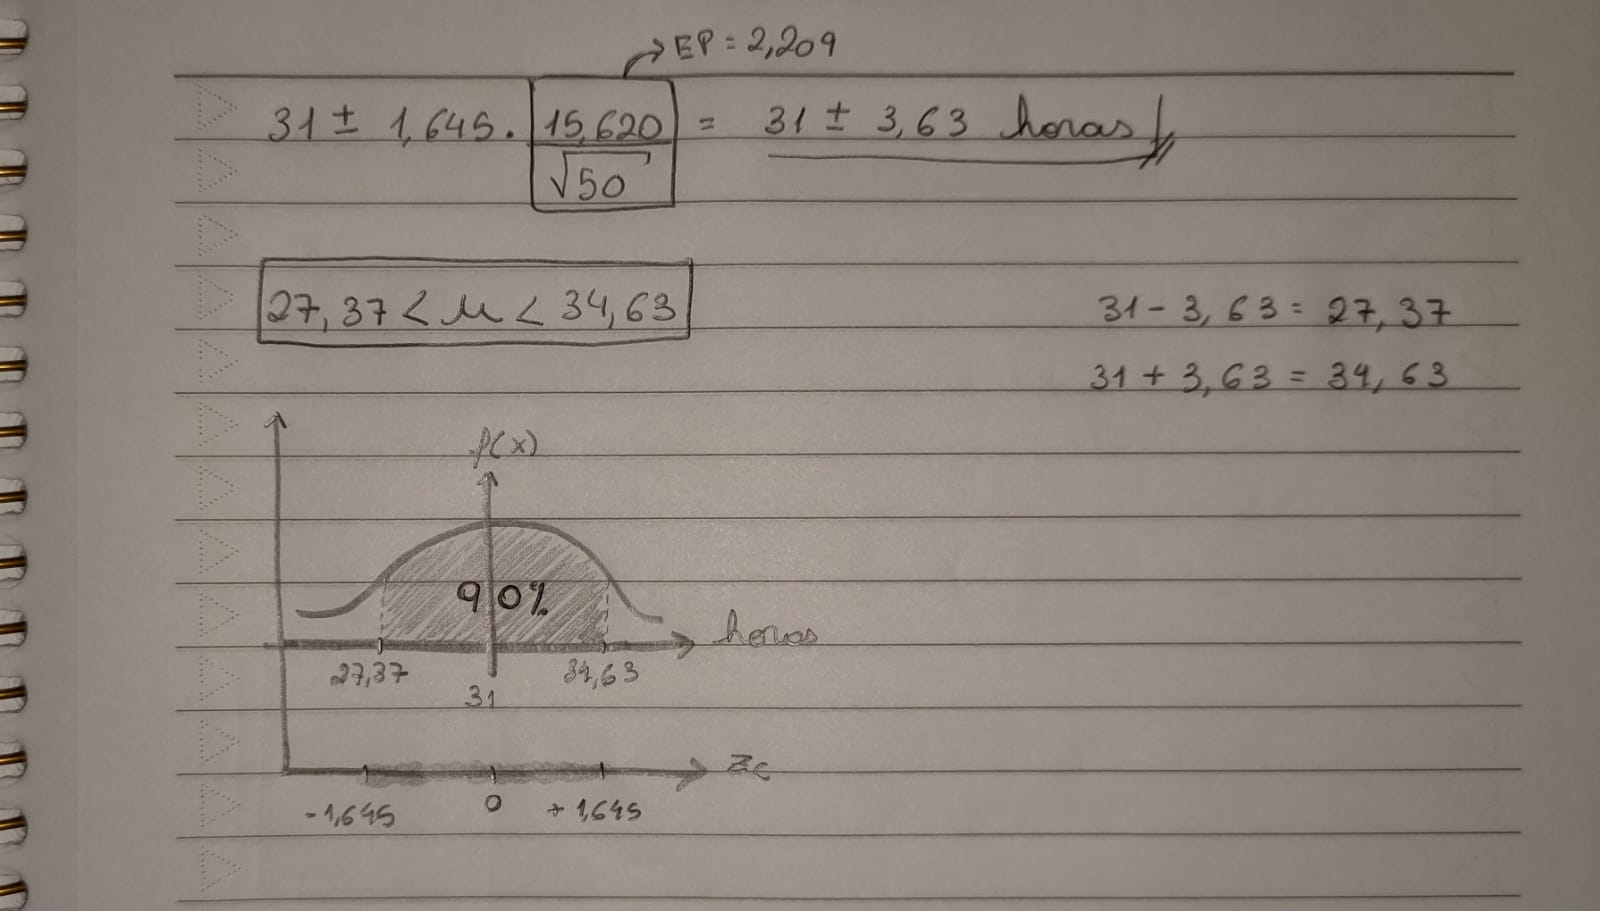 EP = 2,209
31 ± 1,645 . 15,620 / √50 = 31 ± 3,63 horas
27,37 < μ < 34,63
31 - 3,63 = 27,37
31 + 3,63 = 34,63
f(x)
90%
horas
27,37 31 34,63
Zc
-1,645 0 +1,645